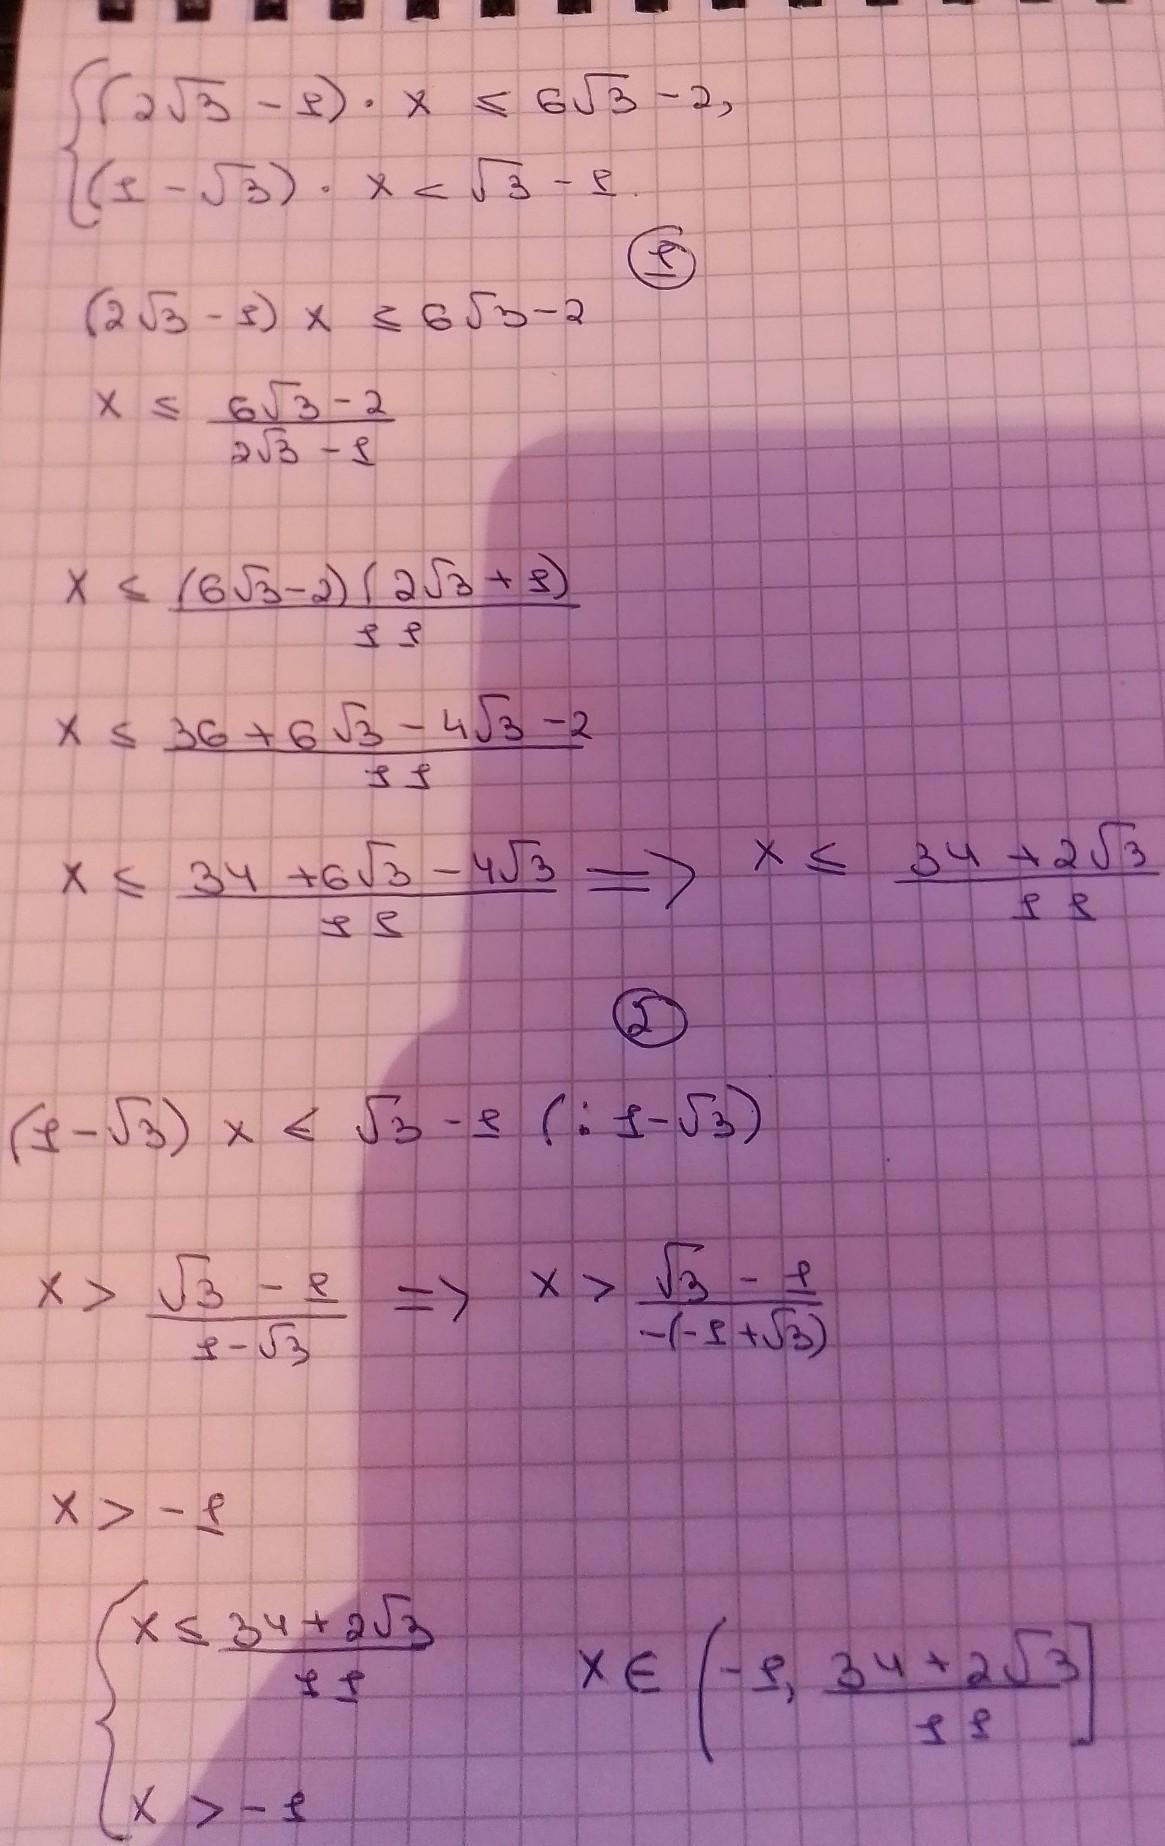 { (2√3 - 1) · x ≤ 6√3 - 2,
(1 - √3) · x < √3 - 1.
①
(2√3 - 1) x ≤ 6√3 - 2
x ≤ (6√3 - 2)/(2√3 - 1)
x ≤ (6√3 - 2)(2√3 + 1)/11
x ≤ (36 + 6√3 - 4√3 - 2)/11
x ≤ (34 + 6√3 - 4√3)/11 => x ≤ (34 + 2√3)/11
②
(1 - √3) x < √3 - 1 (: 1 - √3)
x > (√3 - 1)/(1 - √3) => x > (√3 - 1)/(-(-1 + √3))
x > -1
{ x ≤ (34 + 2√3)/11
x > -1
x ∈ (-1, (34 + 2√3)/11]